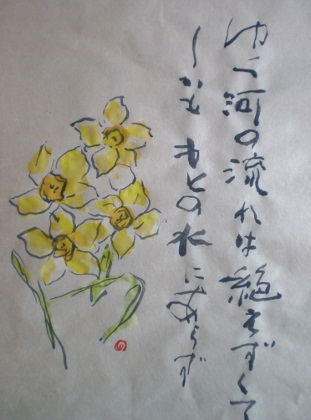 ゆく河の流れは絶えずして
しかも もとの水にあらず